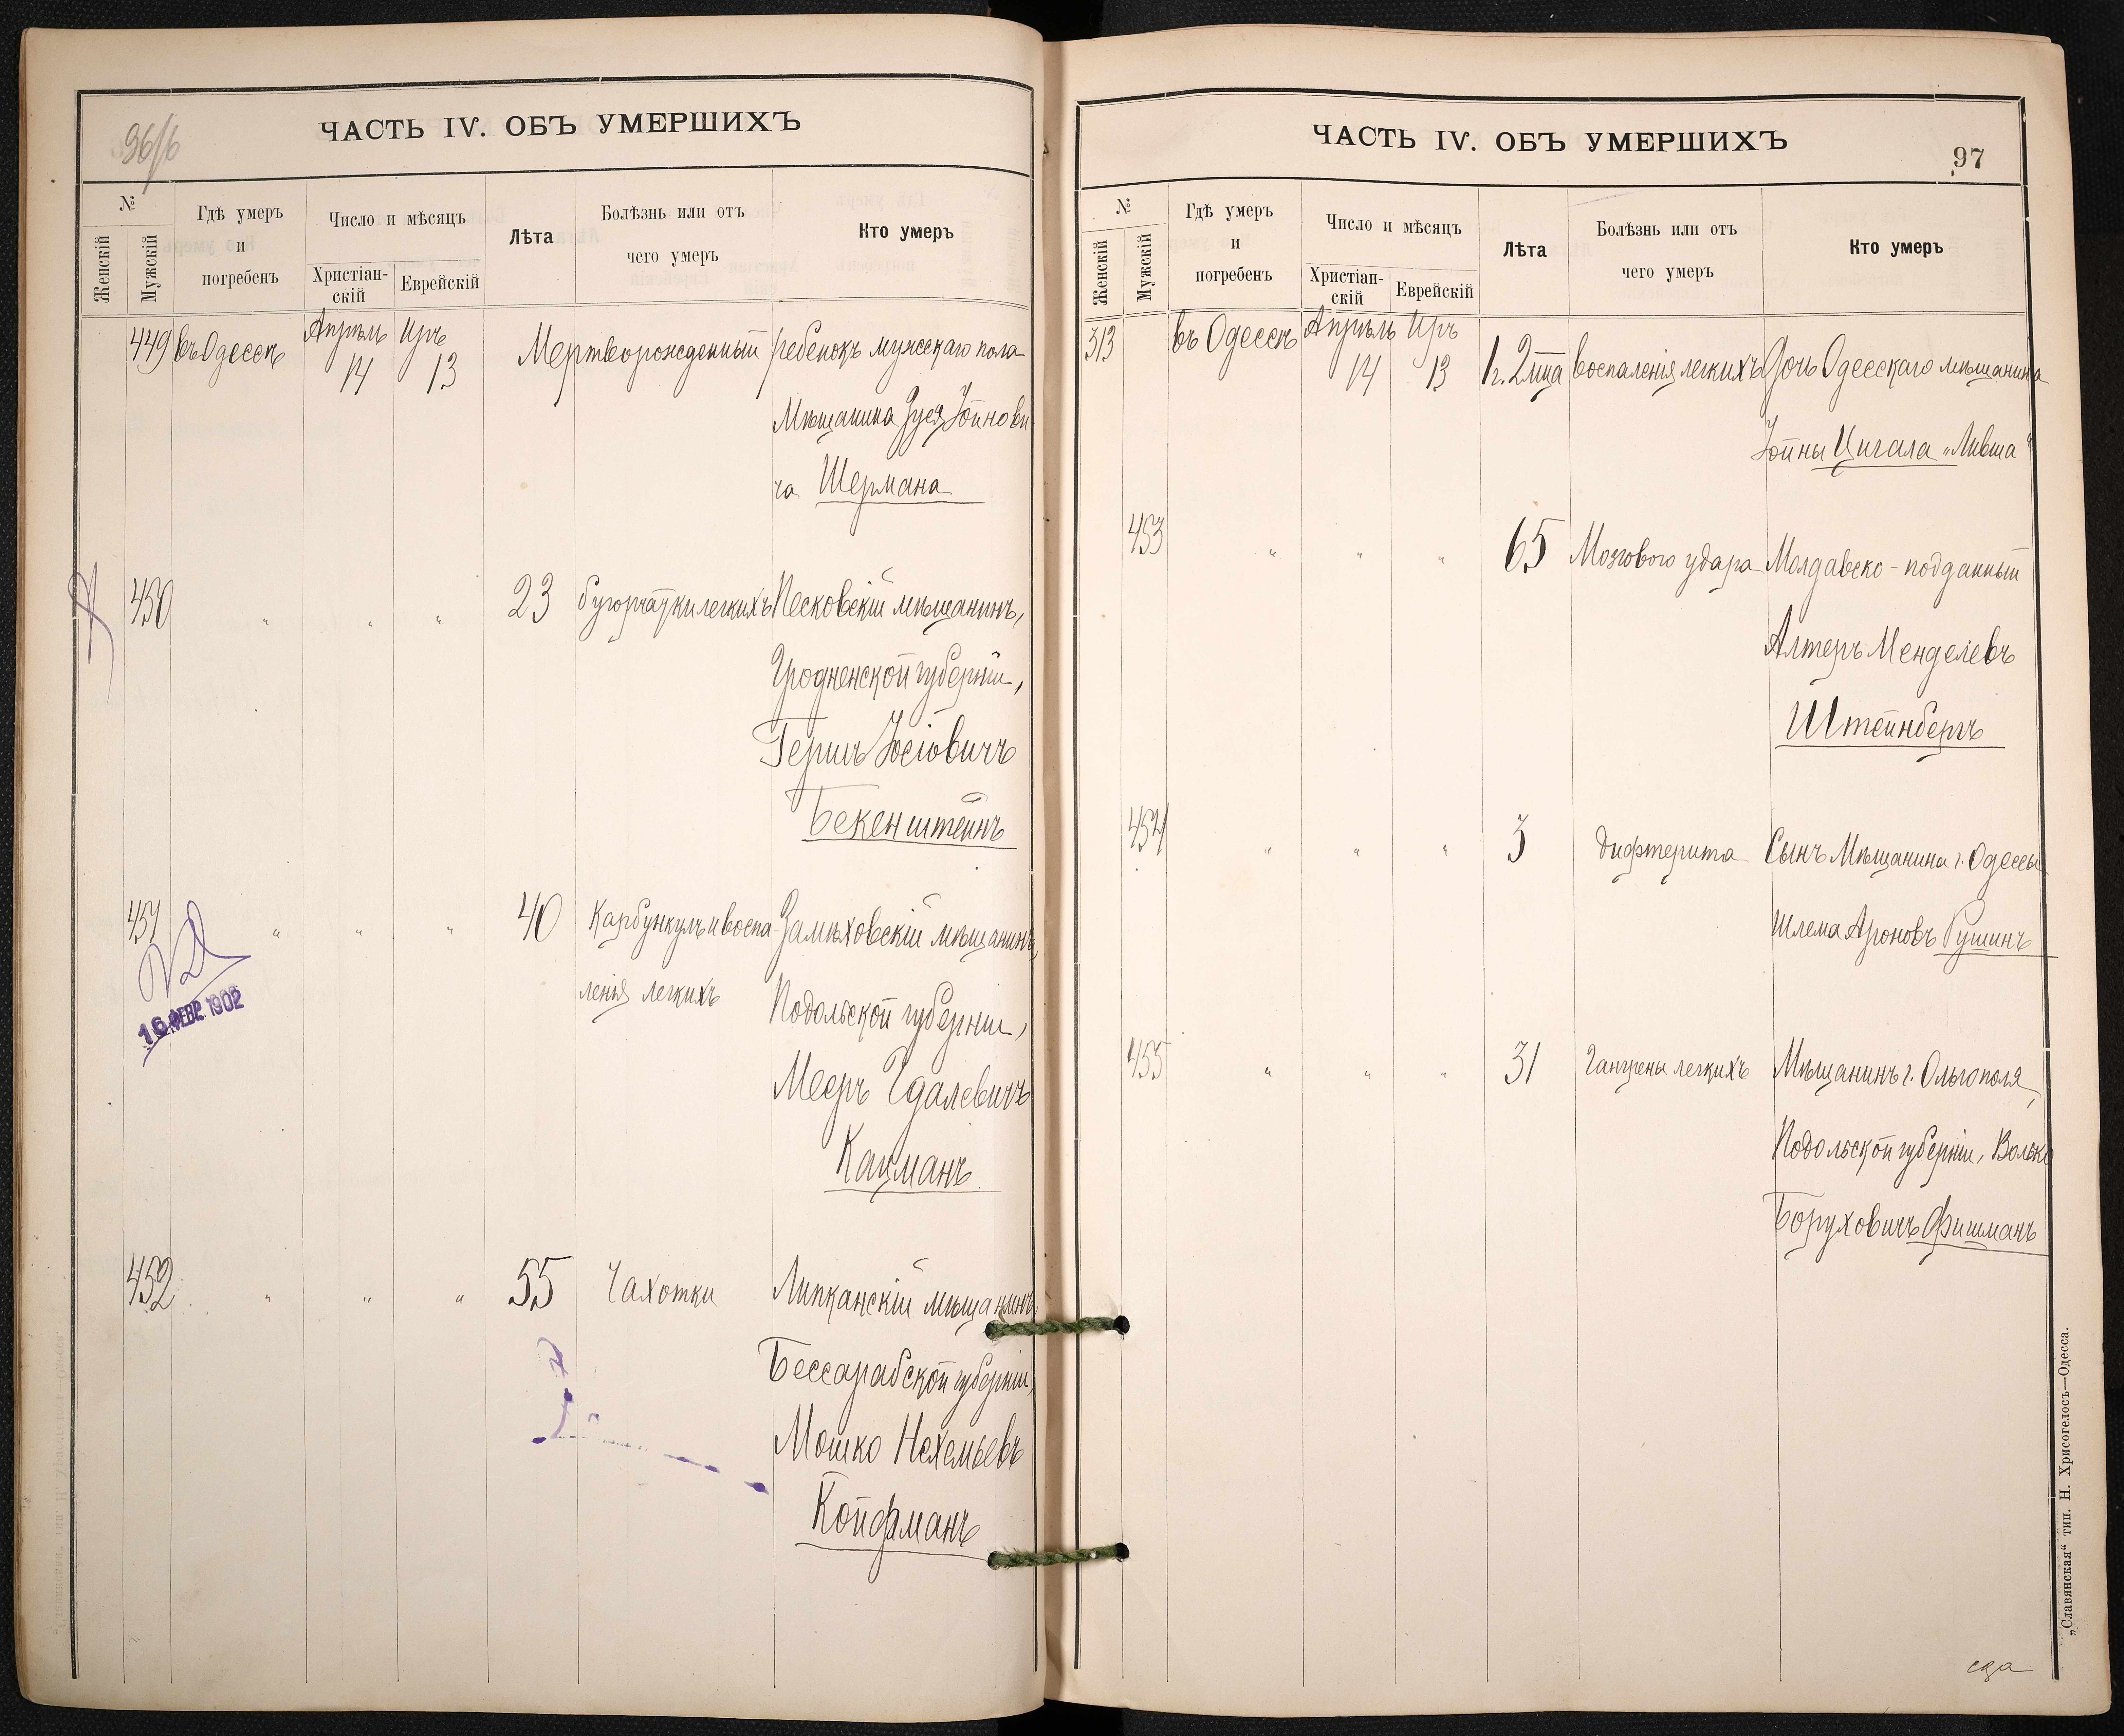 96/6
ЧАСТЬ IV. ОБЪ УМЕРШИХЪ
№
Женскій
Мужскій
Гдѣ умеръ
и
погребенъ
Число и мѣсяцъ
Христіан-
скій
Еврейскій
Лѣта
Болѣзнь или отъ
чего умеръ
Кто умеръ
449 въ Одессѣ Апрѣль 14 Иръ 13 Мертворожденный ребенокъ мужескаго пола
Мѣщанина Зуся Іойнови
ча Шермана
450 " " " 23 бугорчатки легкихъ Песковскій мѣщанинъ,
Гродненской губерніи,
Гершъ Іосіовичъ
Бекенштейнъ
451 " " " 40 Карбункулъ и воспа- Замѣховскій мѣщанинъ,
ленія легкихъ Подольской губерніи,
Мееръ Гдалевичъ
Кацманъ
16 ФЕВР. 1902
452 " " " 55 Чахотки Липканскій мѣщанинъ
Бессарабской губерніи,
Мошко Нехемьевъ
Койфманъ
ЧАСТЬ IV. ОБЪ УМЕРШИХЪ
97
№
Женскій
Мужскій
Гдѣ умеръ
и
погребенъ
Число и мѣсяцъ
Христіан-
скій
Еврейскій
Лѣта
Болѣзнь или отъ
чего умеръ
Кто умеръ
313 въ Одессѣ Апрѣль 14 Иръ 13 1 г. 2 мца воспаленія легкихъ Дочь Одесскаго мѣщанина
Іойны Цигала „Ливша“
453 " " " 65 Мозгового удара Молдавско-подданный
Алтеръ Менделевъ
Штейнбергъ
454 " " " 3 дифтерита Сынъ Мѣщанина г. Одессы
Шлема Ароновъ Гушинъ
455 " " " 31 Гангрены легкихъ Мѣщанинъ г. Ольгополя,
Подольской губерніи, Волько
Боруховичъ Фишманъ
„Славянская“ тип. Н. Хрисогелосъ—Одесса.